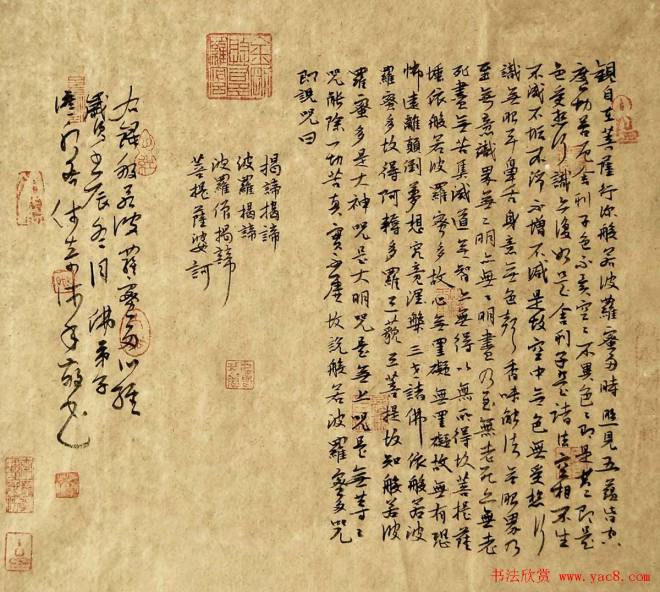 觀自在菩薩行深般若波羅蜜多時照見五蘊皆空
度一切苦厄舍利子色不異空空不異色色即是空空即是
色受想行識亦復如是舍利子是諸法空相不生
不滅不垢不淨不增不減是故空中無色無受想行
識無眼耳鼻舌身意無色聲香味觸法無眼界乃
至無意識界無無明亦無無明盡乃至無老死亦無老
死盡無苦集滅道無智亦無得以無所得故菩提薩
埵依般若波羅蜜多故心無罣礙無罣礙故無有恐
怖遠離顛倒夢想究竟涅槃三世諸佛依般若波
羅蜜多故得阿耨多羅三藐三菩提故知般若波
羅蜜多是大神咒是大明咒是無上咒是無等等
咒能除一切苦真實不虛故說般若波羅蜜多咒
即說咒曰
揭諦揭諦
波羅揭諦
波羅僧揭諦
菩提薩婆訶
右錄般若波羅蜜多心經
歲在壬辰冬月佛弟子
书法欣赏 www.yac8.com